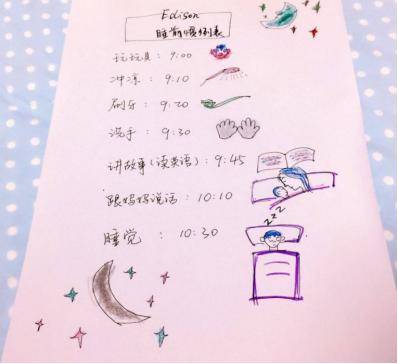 Edison
睡前惯例表
玩玩具：9:00
冲凉：9:10
刷牙：9:20
洗手：9:30
讲故事(读英语)：9:45
跟妈妈说话：10:10
睡觉：10:30
zzz